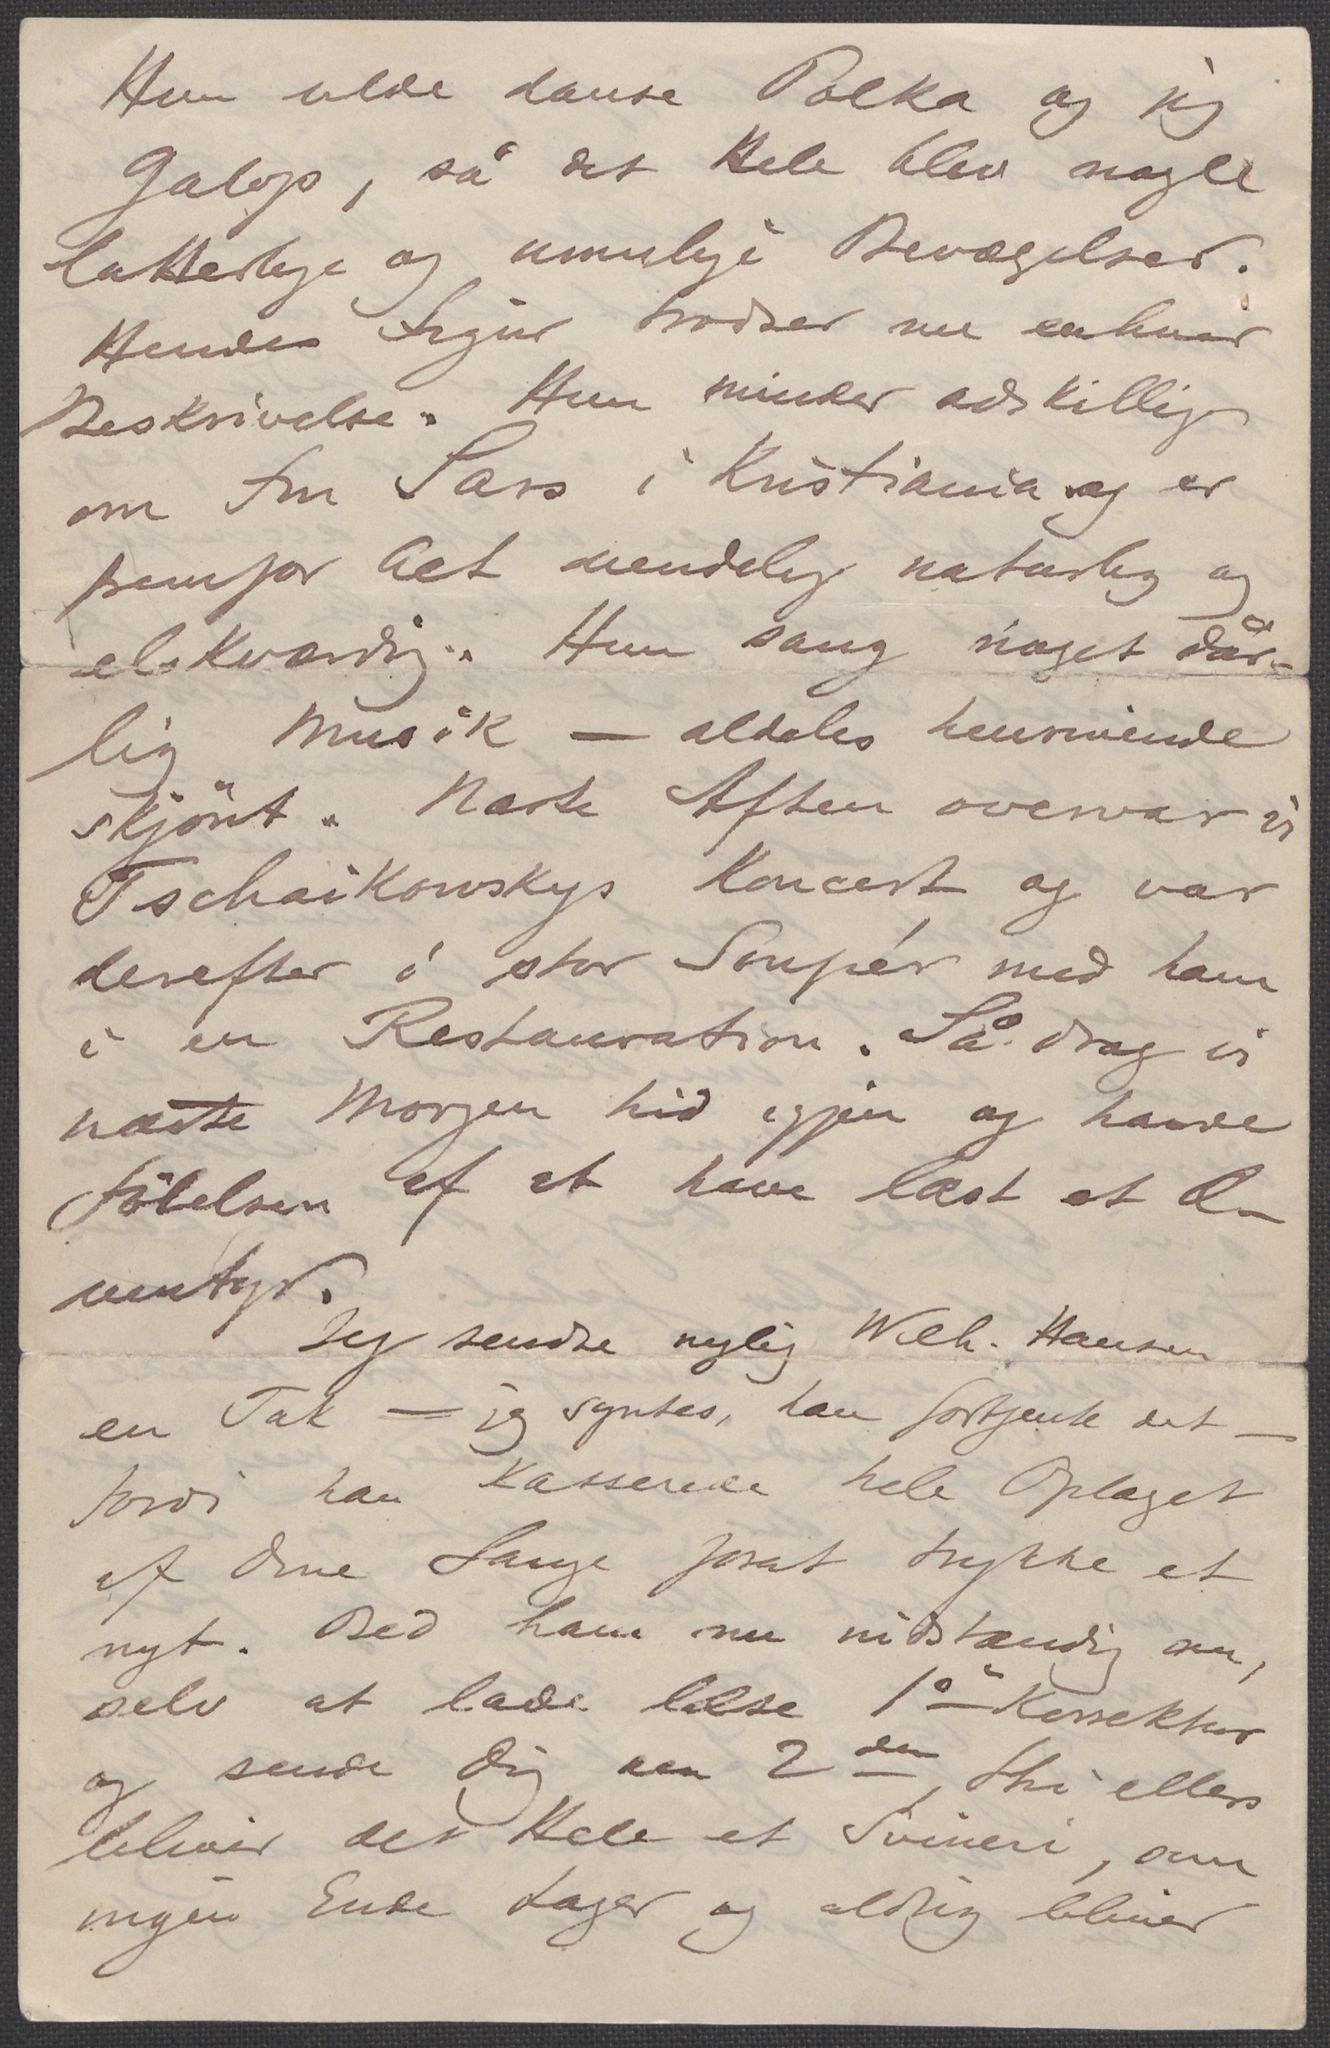 Hun vilde danse Polka og jeg
Galop, så det Hele blev nogle
latterlige og umulige Bevægelser.
Hendes Figur trodser nu enhver
Beskrivelse. Hun minder adskillig
om Fru Sars i Kristiania og er
fremfor Alt uendelig naturlig og
elskværdig. Hun sang noget dår-
lig Musik — aldeles henrivende
skjönt. Næste Aften overvar vi
Tschaikowskys Koncert og var
derefter i stor Soupér med ham
i en Restauration. Så drog vi
næste Morgen hid igjen og havde
Følelsen af at have læst et Æ-
ventyr.
Jeg sendte nylig Wilh. Hansen
en Tak — jeg syntes, han fortjente det —
fordi han kasserede hele Oplaget
af dine Sange forat trykke et
nyt. Bed ham nu inds­tændig om,
selv at lade læse 1ste Korrektur
og sende dig den 2den, thi ellers
bliver det Hele et Svineri, som
ingen Ende tager og aldrig bliver